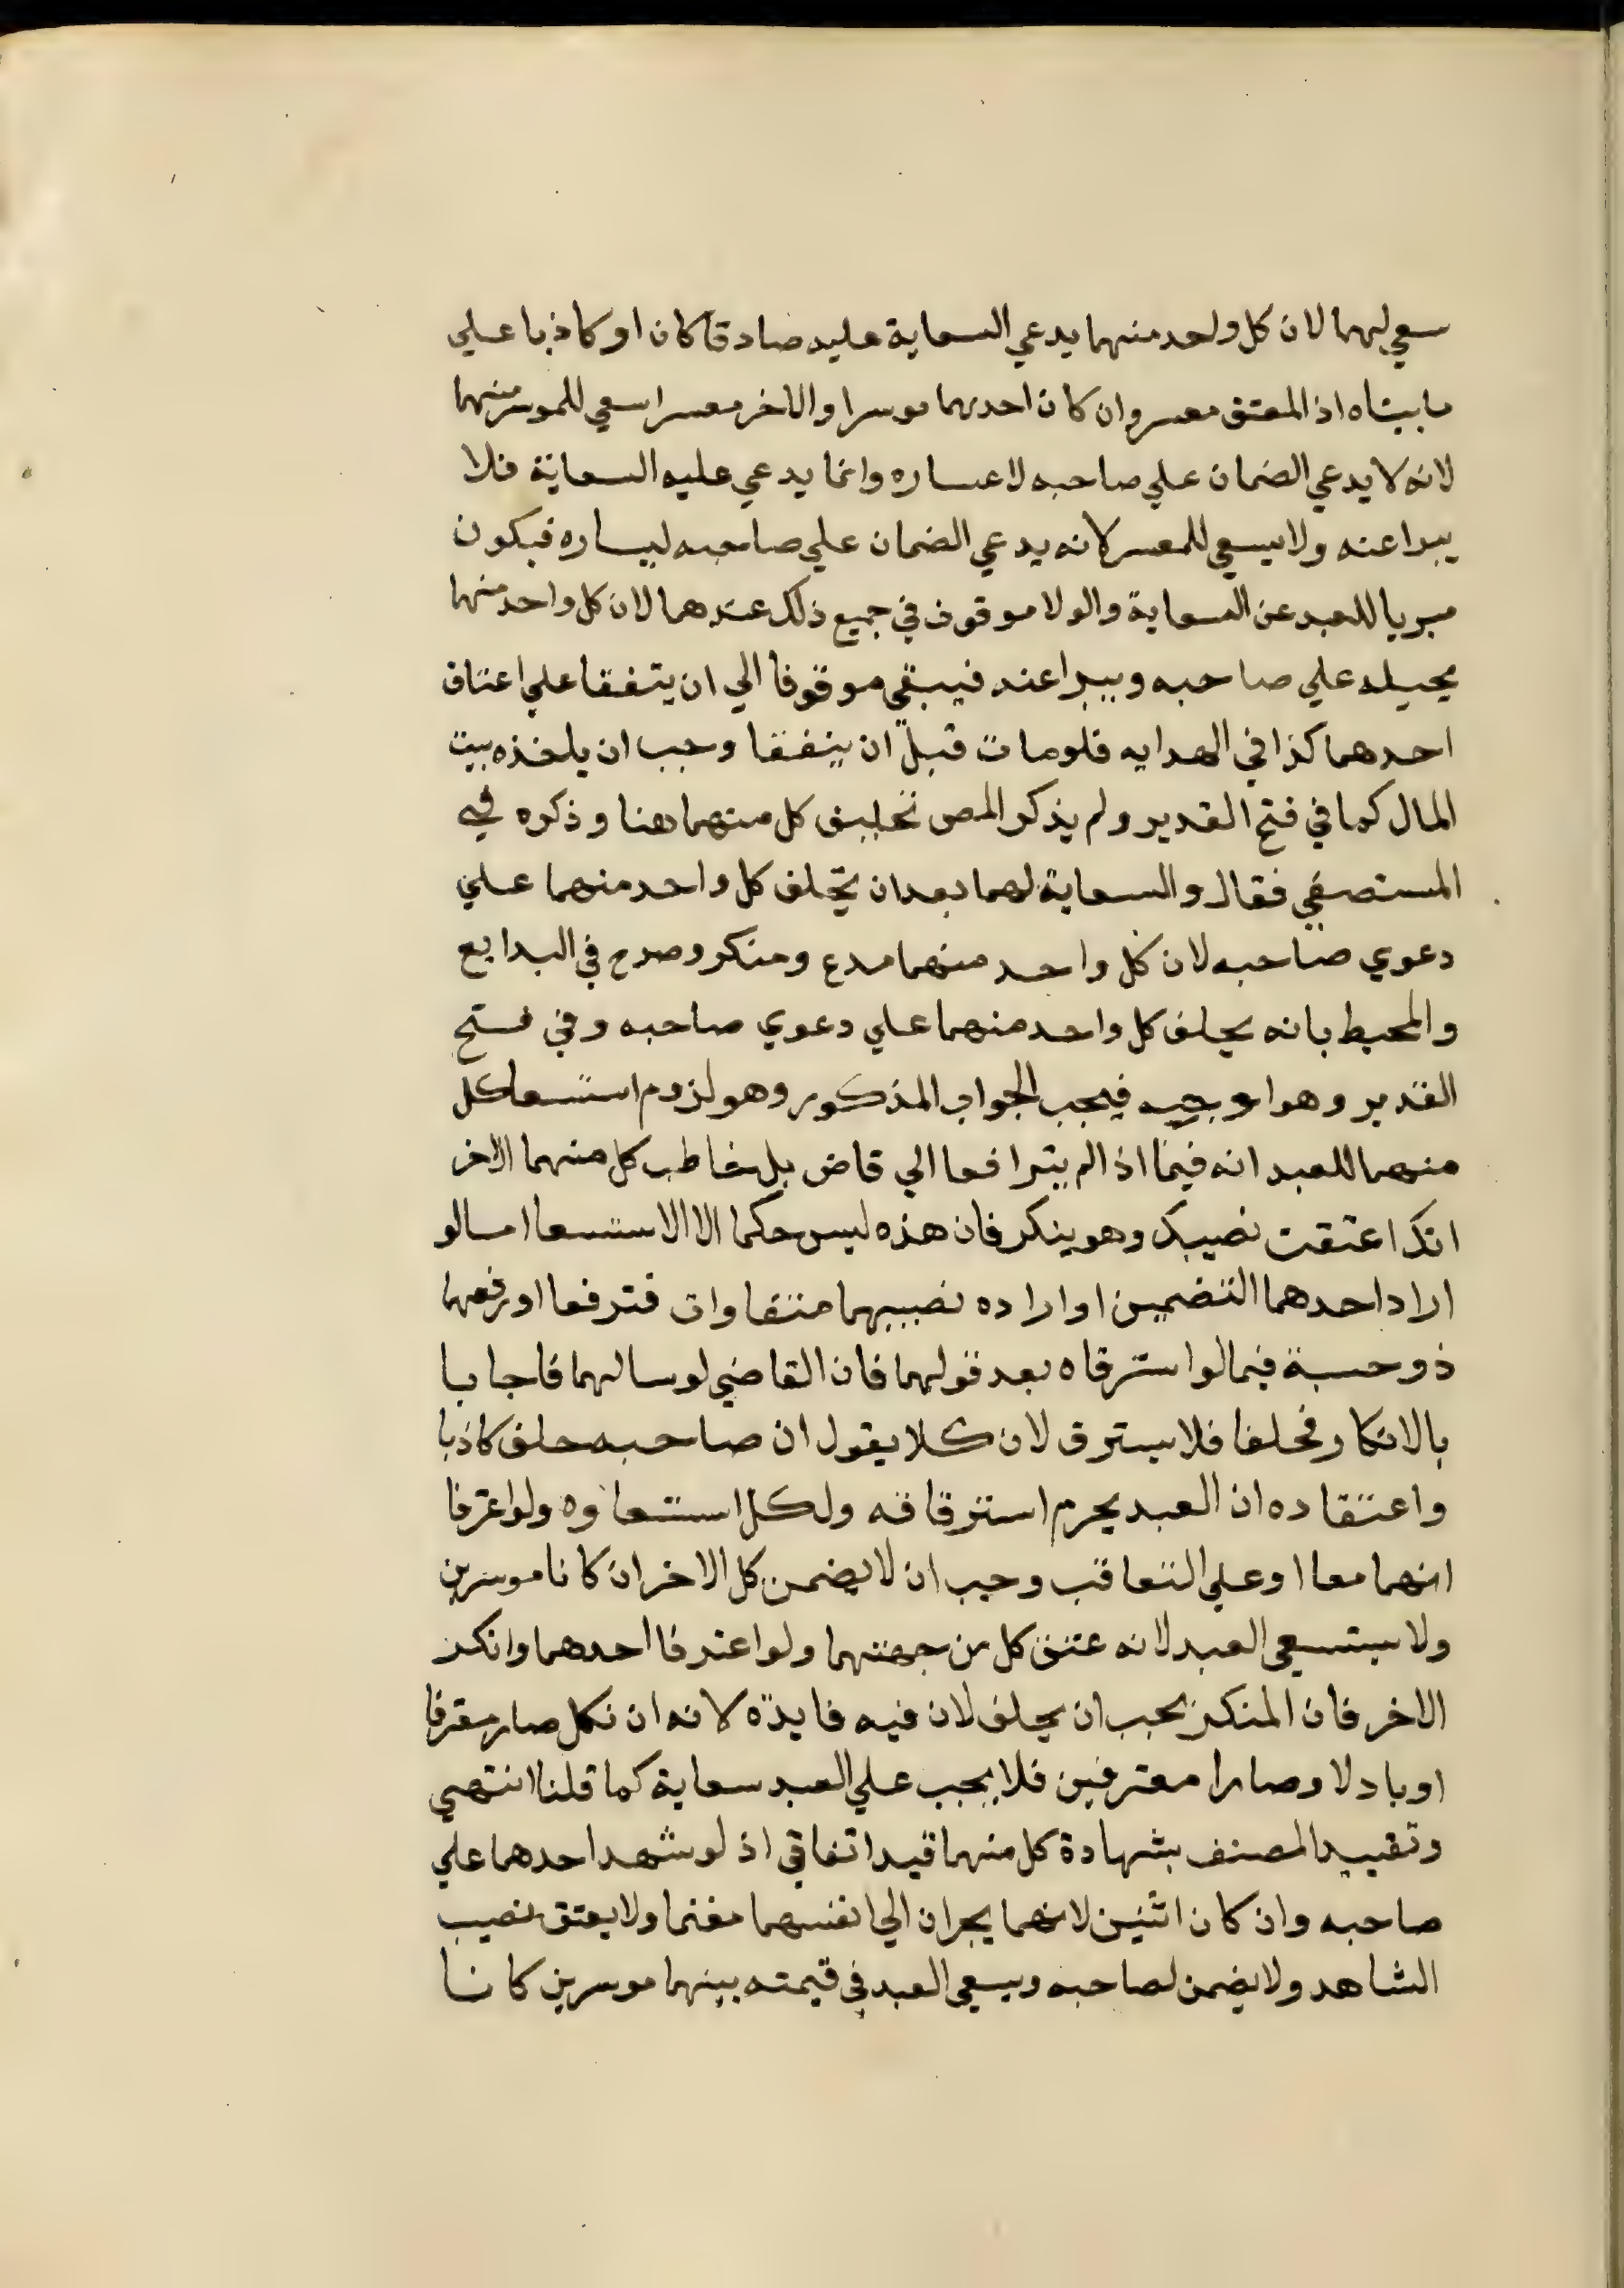 سعي لهما لان كل واحد منهما يدعي السعاية عليه صادقا كان او كاذبا علي
ما بيناه اذ المعتق معسر وان كان احدهما موسرا والاخر معسرا سعي للموسر منهما
لانه لا يدعي الضمان علي صاحبه لاعساره وانما يدعي عليه السعاية فلا
يبرا عنه ولا يسعي للمعسر لانه يدعي الضمان علي صاحبه ليساره فيكون
مبريا للعبد عن السعاية والولا موقوف في جميع ذلك عندهما لان كل واحد منهما
يحيله علي صاحبه ويبرا عنه فيبقي موقوفا الي ان يتفقا علي اعتاق
احدهما كذا في الهدايه فلو مات قبل ان يتفقا وجب ان ياخذه بيت
المال كما في فتح القدير ولم يذكر المص تحليف كل منهما هنا وذكره في
المستصفي فقال والسعاية لهما بعد ان يحلف كل واحد منهما علي
دعوي صاحبه لان كل واحد منهما مدع ومنكر وصرح في البدايع
والمحيط بانه يحلف كل واحد منهما علي دعوي صاحبه وفي فتح
القدير وهو اوجه فيجب الجواب المذكور وهو لزوم استسعا كل
منهما للعبد انه فيما اذا لم يترافعا الي قاض بل خاطب كل منهما الاخر
انك اعتقت نصيبك وهو ينكر فان هذه ليس حكما الا الاستسعا اما لو
اراد احدهما التضمين او اراده نصيبهما متفاوت فترفعا او رفعهما
ذو حسبة فيما لو استرقاه بعد قولهما فان القاضي لو سالهما فاجابا
بالانكار فحلفا فلا يسترق لان كلا يقول ان صاحبه حلف كاذبا
واعتقاده ان العبد يحرم استرقاقه ولكل استسعاوه ولو اعترفا
انهما معا او علي التعاقب وجب ان لا يضمن كل الاخر ان كانا موسرين
ولا يستسعي العبد لانه عتق كل من جهتهما ولو اعترفا احدهما وانكر
الاخر فان المنكر يجب ان يحلف لان فيه فايدة لانه ان نكل صار معترفا
او باذلا وصارا معترفين فلا يجب علي العبد سعاية كما قلنا انتهي
وتقييد المصنف بشهادة كل منهما قيد اتفاقي اذ لو شهد احدهما علي
صاحبه وان كان اثنين لانهما يجران الي انفسهما مغنما ولا يعتق نصيب
الشاهد ولا يضمن لصاحبه ويسعي العبد في قيمته بينهما موسرين كانا